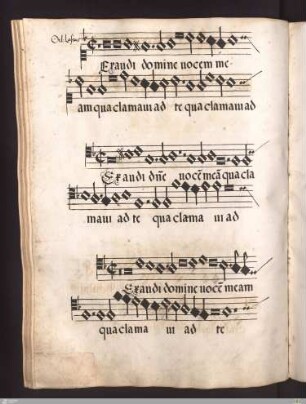 Exaudi domine uocem me
am qua clamaui ad te qua clamaui ad
Exaudi dñe uocē meā qua cla
maui ad te qua clama ui ad
Exaudi domine uocē meam
qua clama ui ad te